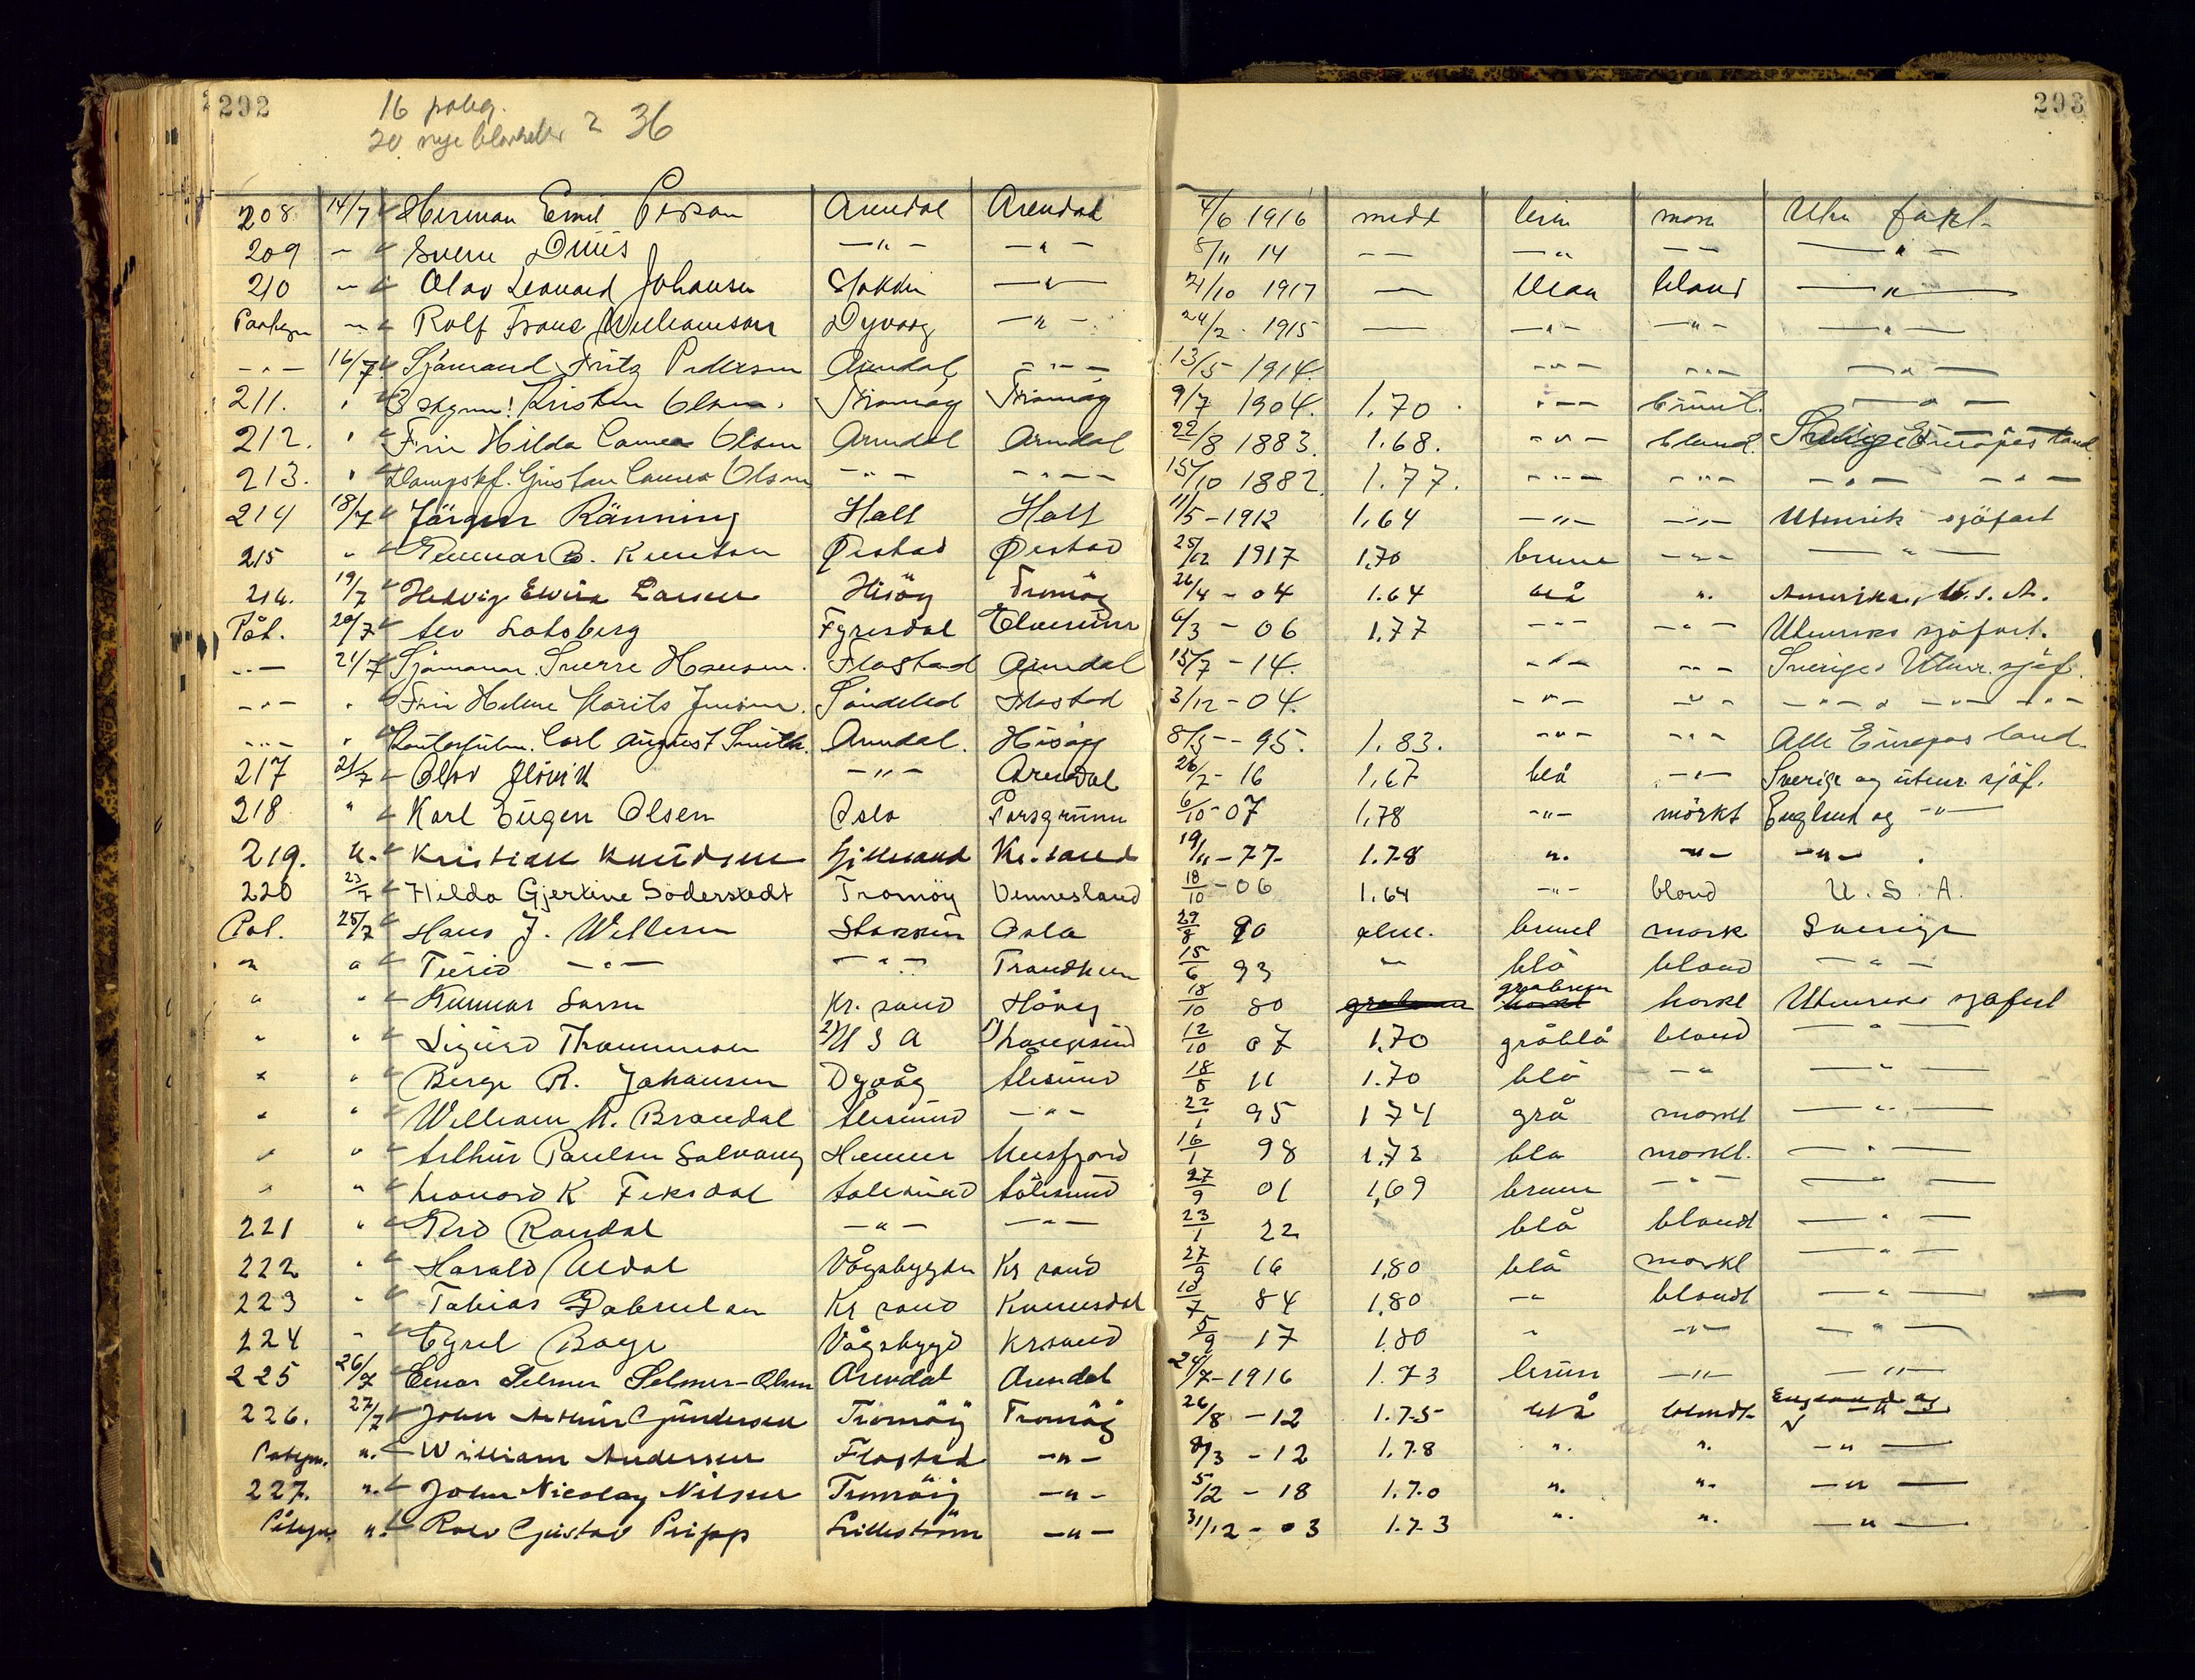 292
293
16 påteg.
20 nye blanketter = 36
208 14/7 Herman Emil Arendal Arendal 4/6 1916 midt brun mørk Uten fart
209 — Sverre Duus —"— —"— 8/11 14 — — —"— — — —"—
210 — Olav Leonard Johansen Stokken —"— 21/10 1917 — blaa blond —"—
Paategn — Rolf Frans Williamsen Dyvaag —"— 24/2 1915 — —"— —"— —"—
—"— 16/7 Sjömand Fritz Pedersen Arendal —"— 13/5 1914. —"— —"— —"—
211. " Kristen Olsen. Tromöy Tromöy 9/7 1904. 1.70. —"— brunt. —"—
212. " Fru Hilda Olsen Arendal Arendal 22/8 1883. 1.68. —"— blond. Europas land
213. " Dampskf. Gustav Olsen —"— —"— 15/10 1882. 1.77. —"— —"— —"— —"—
214 18/7 Jörgen Rönning Holt Holt 11/5-1912 1,64 —"— —"— Utenriks sjöfart
215 " Gunnar B. Knutsen Øiestad Øiestad 25/12 1917 1,70 brune —"— —"—
216. 19/7 Hedvig Elvira Larsen Hisöy Tromöy 26/4 - 04 1.64 blå ". Amerika, U.S.A.
Påt. 20/7 Fyresdal Elverum 6/3 - 06 1,77 —"— —"— Utenriks sjöfart.
—"— 21/7 Sjömann. Sverre Hansen. Flostad Arendal 15/7 - 14. —"— —"— Sverige Utenr. sjöf.
—"— " Fru Helene Marits Jensen. Söndeled Flostad 3/12 - 04. —"— —"— —"— —"—
—"— " Carl August Smith. Arendal. Hisöy 8/5 - 95. 1.83. —"— —"— Alle Europas land.
217 21/7 Olav —"— Arendal 26/2 - 16 1,67 blå —"— Sverige og utenr sjöf.
218 " Karl Eugen Olsen Oslo Porsgrunn 6/10 - 07 1,78 —"— mörkt England og —"—
219. ". Kristian Knudsen Kr.sand 19/11 - 77- 1.78 ". —"— —"—.
220 23/7 Hilda Gjertine Söderstedt Tromöy Vennesland 18/10 - 06 1.64 —"— blond U.S.A.
Pat. 25/7 Hans J. Willesen Stokken Oslo 29/8 90 alm. brunt mørk Sverige
" " Turid —"— —"— Trondheim 15/6 93 " blå blond —"—
" " Gunnar Larsen Kr. sand Hövåg 18/10 80 gråbrun mørkt Utenriks sjøfart
" " Sigurd Thommesen U S A Langesund 12/10 07 1.70 gråblå blond —"—
" " Berge R. Johansen Dypvåg Ålesund 18/8 11 1.70 blå —"— —"—
" " William A. Brandal Ålesund —"— 22/1 95 174 grå mørkt —"—
" " Arthur Paulsen Solvang 16/1 98 1.72 blå mørkt. —"—
" " Leonard K Feksdal Aalesund Aalesund 27/9 01 1,69 brune —"— —"—
221 " Randal —"— —"— 23/1 22 blå blondt —"—
222 " Harald Uldal Vågsbygden Kr sand 27/9 16 1,80 blå mørkt —"—
223 " Tobias Gabrielsen Kr sand Kvinesdal 10/7 84 1,80 —"— blondt —"—
224 " Cyril Boye Vågsbygd Kr.sand 5/9 17 1.80 " —"— —"—
225 26/7 Einar Selmer Selmer-Olsen Arendal Arendal 24/7-1916 1.73 brun —"— —"—
226. 27/7 John Arthur Gundersen Tromöy Tromöy 26/8 - 12 1.75 blå blondt England og —"—
Pategn. ". William Andersen Flostad —"— 8/3 - 12 1.78 ". ". —"—
227. ". John Nicolay Nilsen Tromöy —"— 5/2 - 18 1.70 ". ". —"—
Påtegn. ". Rolv Gustav Pripp Lilleström —"— 31/12 - 03 1.73 ". ". —"—